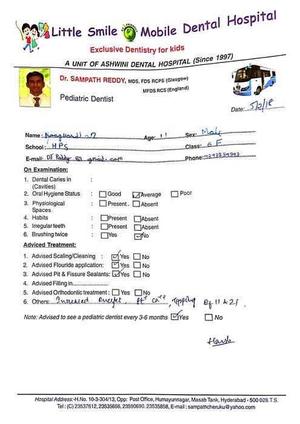 Little Smile Mobile Dental Hospital
Exclusive Dentistry for kids
A UNIT OF ASHWINI DENTAL HOSPITAL (Since 1997)
Dr. SAMPATH REDDY, MDS, FDS RCPS (Glasgow)
MFDS RCS (England)
Pediatric Dentist
Date:
Name: Age: 11 Sex: Male
School: HPS Class: 6 F
E-mail: Phone:
On Examination:
1. Dental Caries in :
(Cavities)
2. Oral Hygiene Status : Good Average Poor
3. Physiological : Present. Absent
Spaces
4. Habits : Present Absent
5. Irregular teeth : Present Absent
6. Brushing twice : Yes No
Adviced Treatment:
1. Advised Scaling/Cleaning : Yes No
2. Advised Flouride application: Yes No
3. Advised Pit & Fissure Sealants: Yes No
4. Advised Filling in
5. Advised Orthodontic treatment : Yes No
6. Others: Increased overjet, Tipping of 11 & 21.
Note: Advised to see a pediatric dentist every 3-6 months Yes No
Hospital Address: H.No. 10-3-304/13, Opp: Post Office, Humayunnagar, Masab Tank, Hyderabad - 500 028 T.S.
Tel: (C) 23537612, 23535666, 23590690, 23535858, E-mail: sampathcheruku@yahoo.com